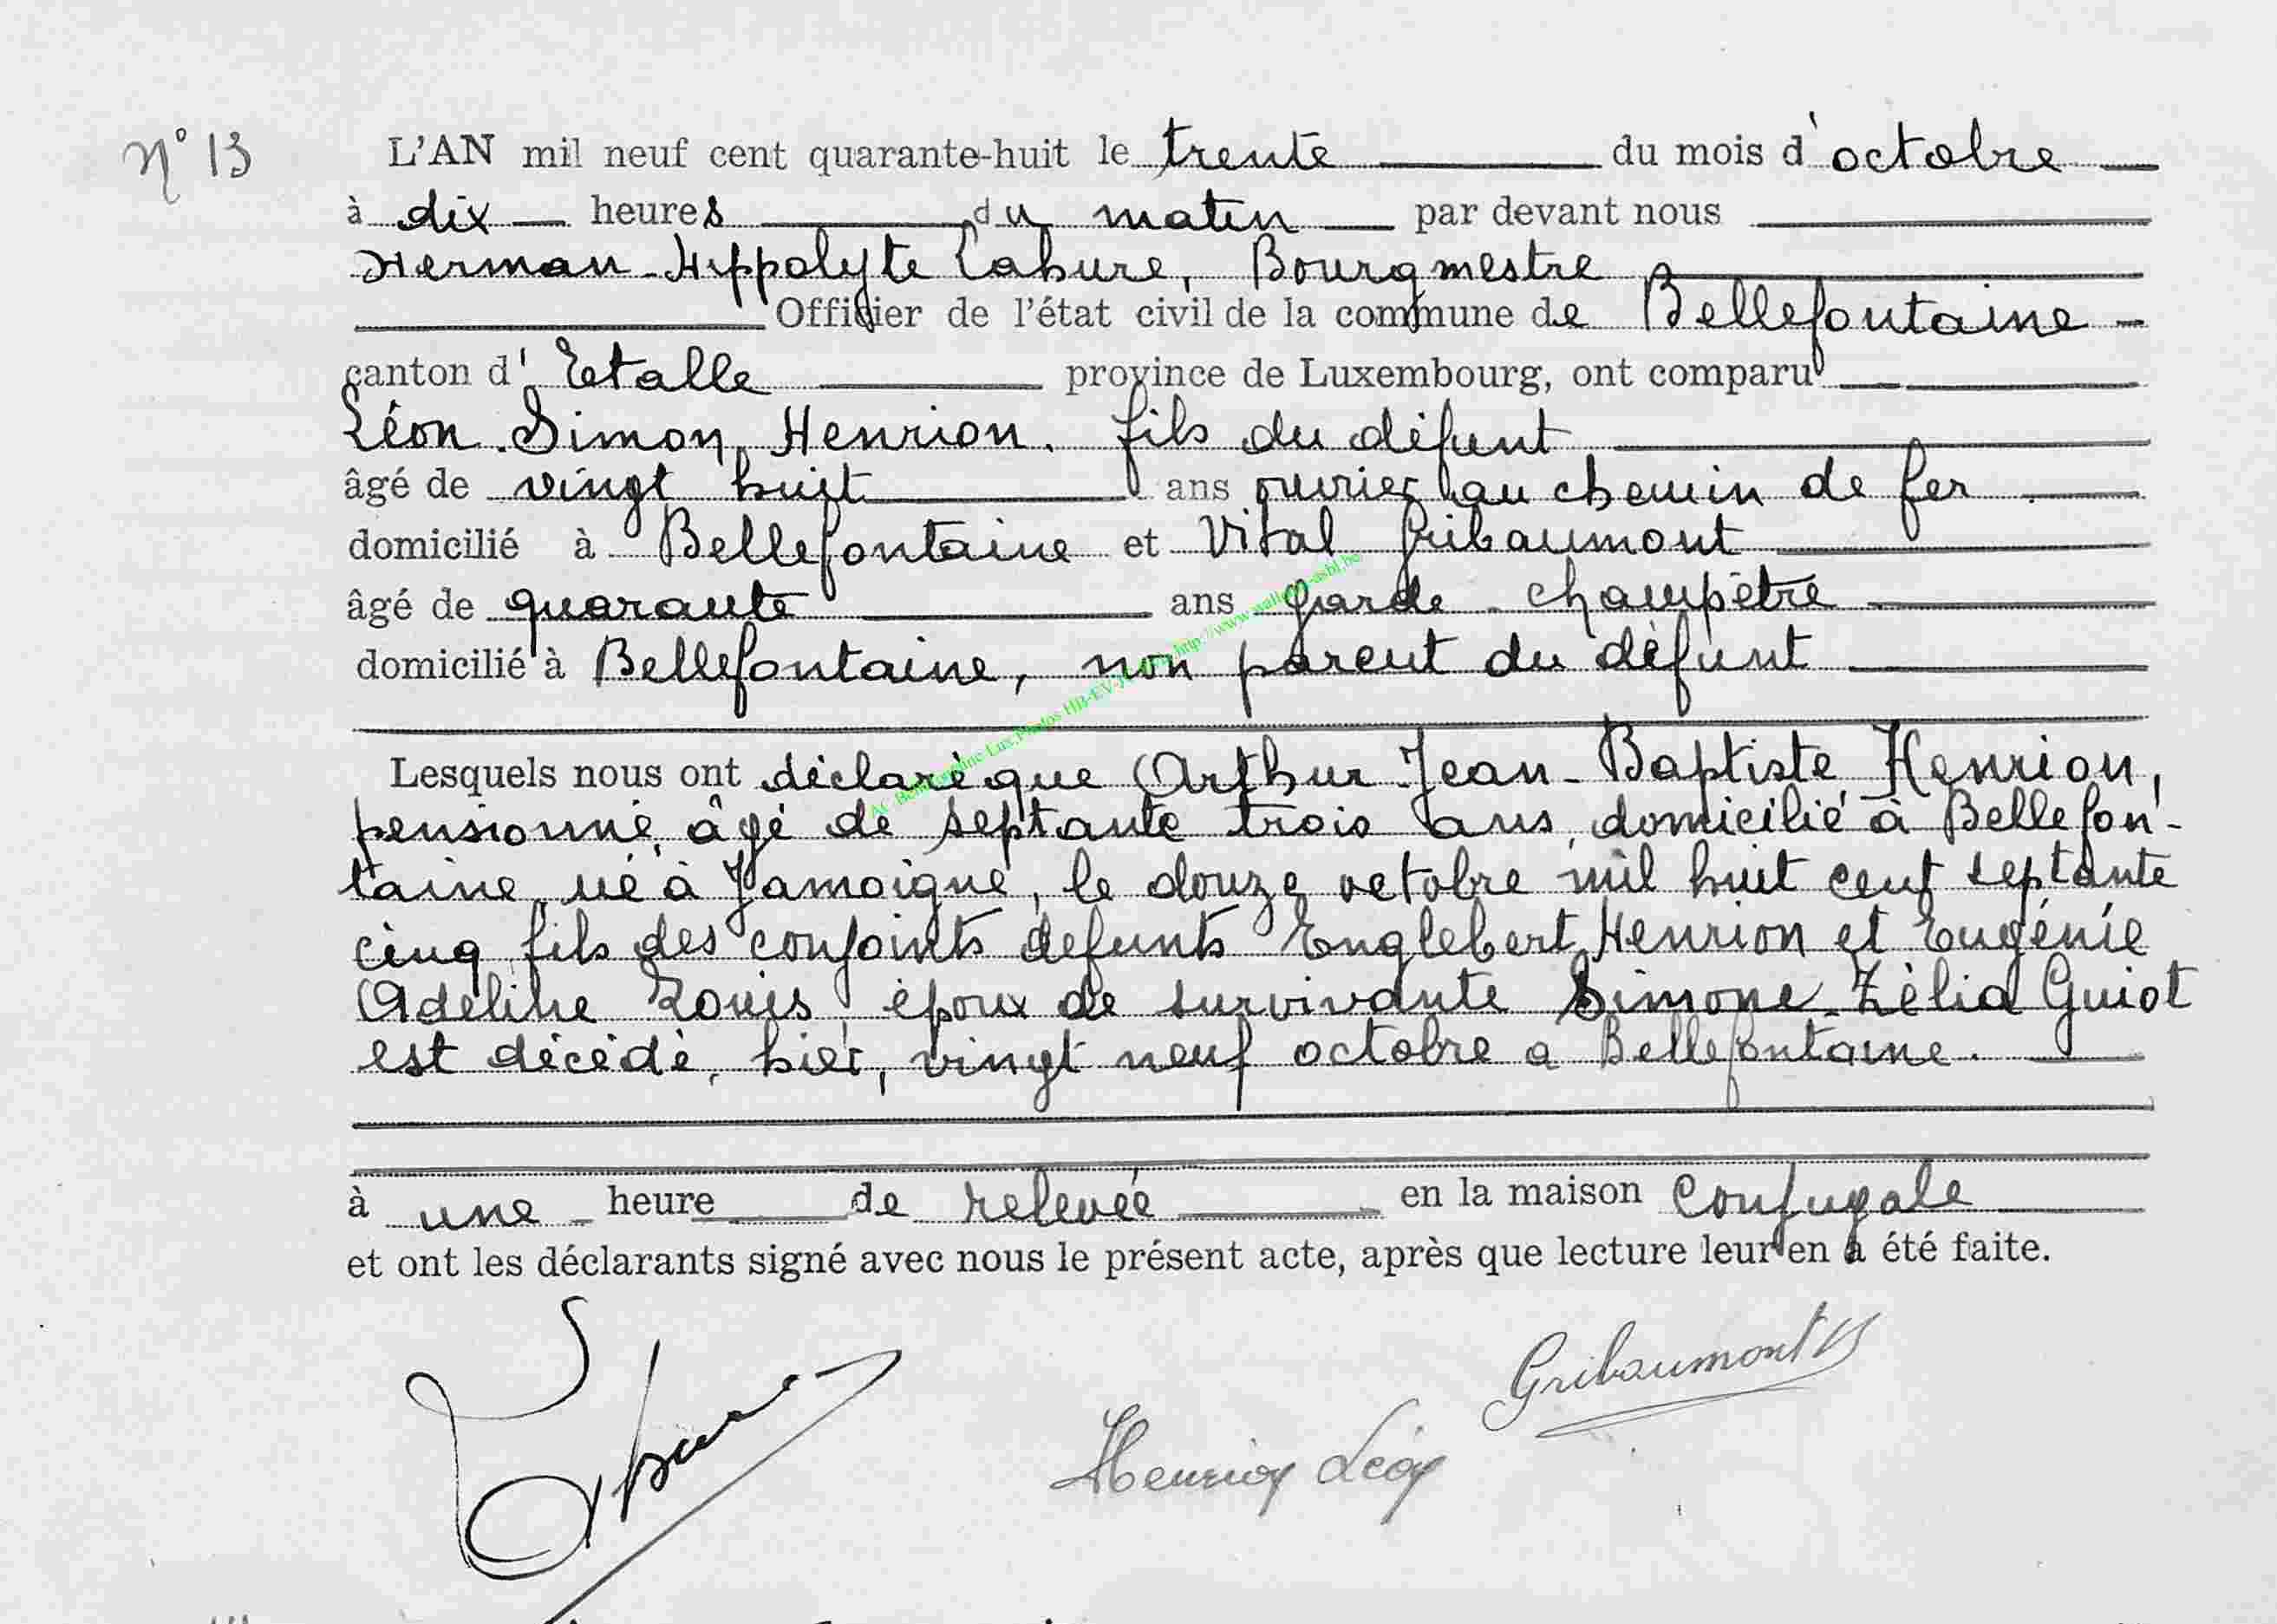 N° 13
L'AN mil neuf cent quarante-huit le trente du mois d'octobre
à dix heures du matin par devant nous
Herman-Hippolyte Lahure, Bourgmestre
Officier de l'état civil de la commune de Bellefontaine
canton d'Etalle province de Luxembourg, ont comparu
Léon Simon Henrion, fils du défunt
âgé de vingt huit ans ouvrier au chemin de fer
domicilié à Bellefontaine et Vital Gribaumont
âgé de quarante ans garde champêtre
domicilié à Bellefontaine, non parent du défunt
Lesquels nous ont déclaré que Arthur Jean-Baptiste Henrion,
pensionné, âgé de septante trois ans, domicilié à Bellefon-
taine, né à Jamoigne, le douze octobre mil huit cent septante
cinq, fils des conjoints défunts Englebert Henrion et Eugénie
Adeline Louis époux de survivante Simone-Zélia Guiot
est décédé, hier, vingt neuf octobre a Bellefontaine.
à une heure de relevée en la maison conjugale
et ont les déclarants signé avec nous le présent acte, après que lecture leur en a été faite.
Gribaumont V
Henrion Léon